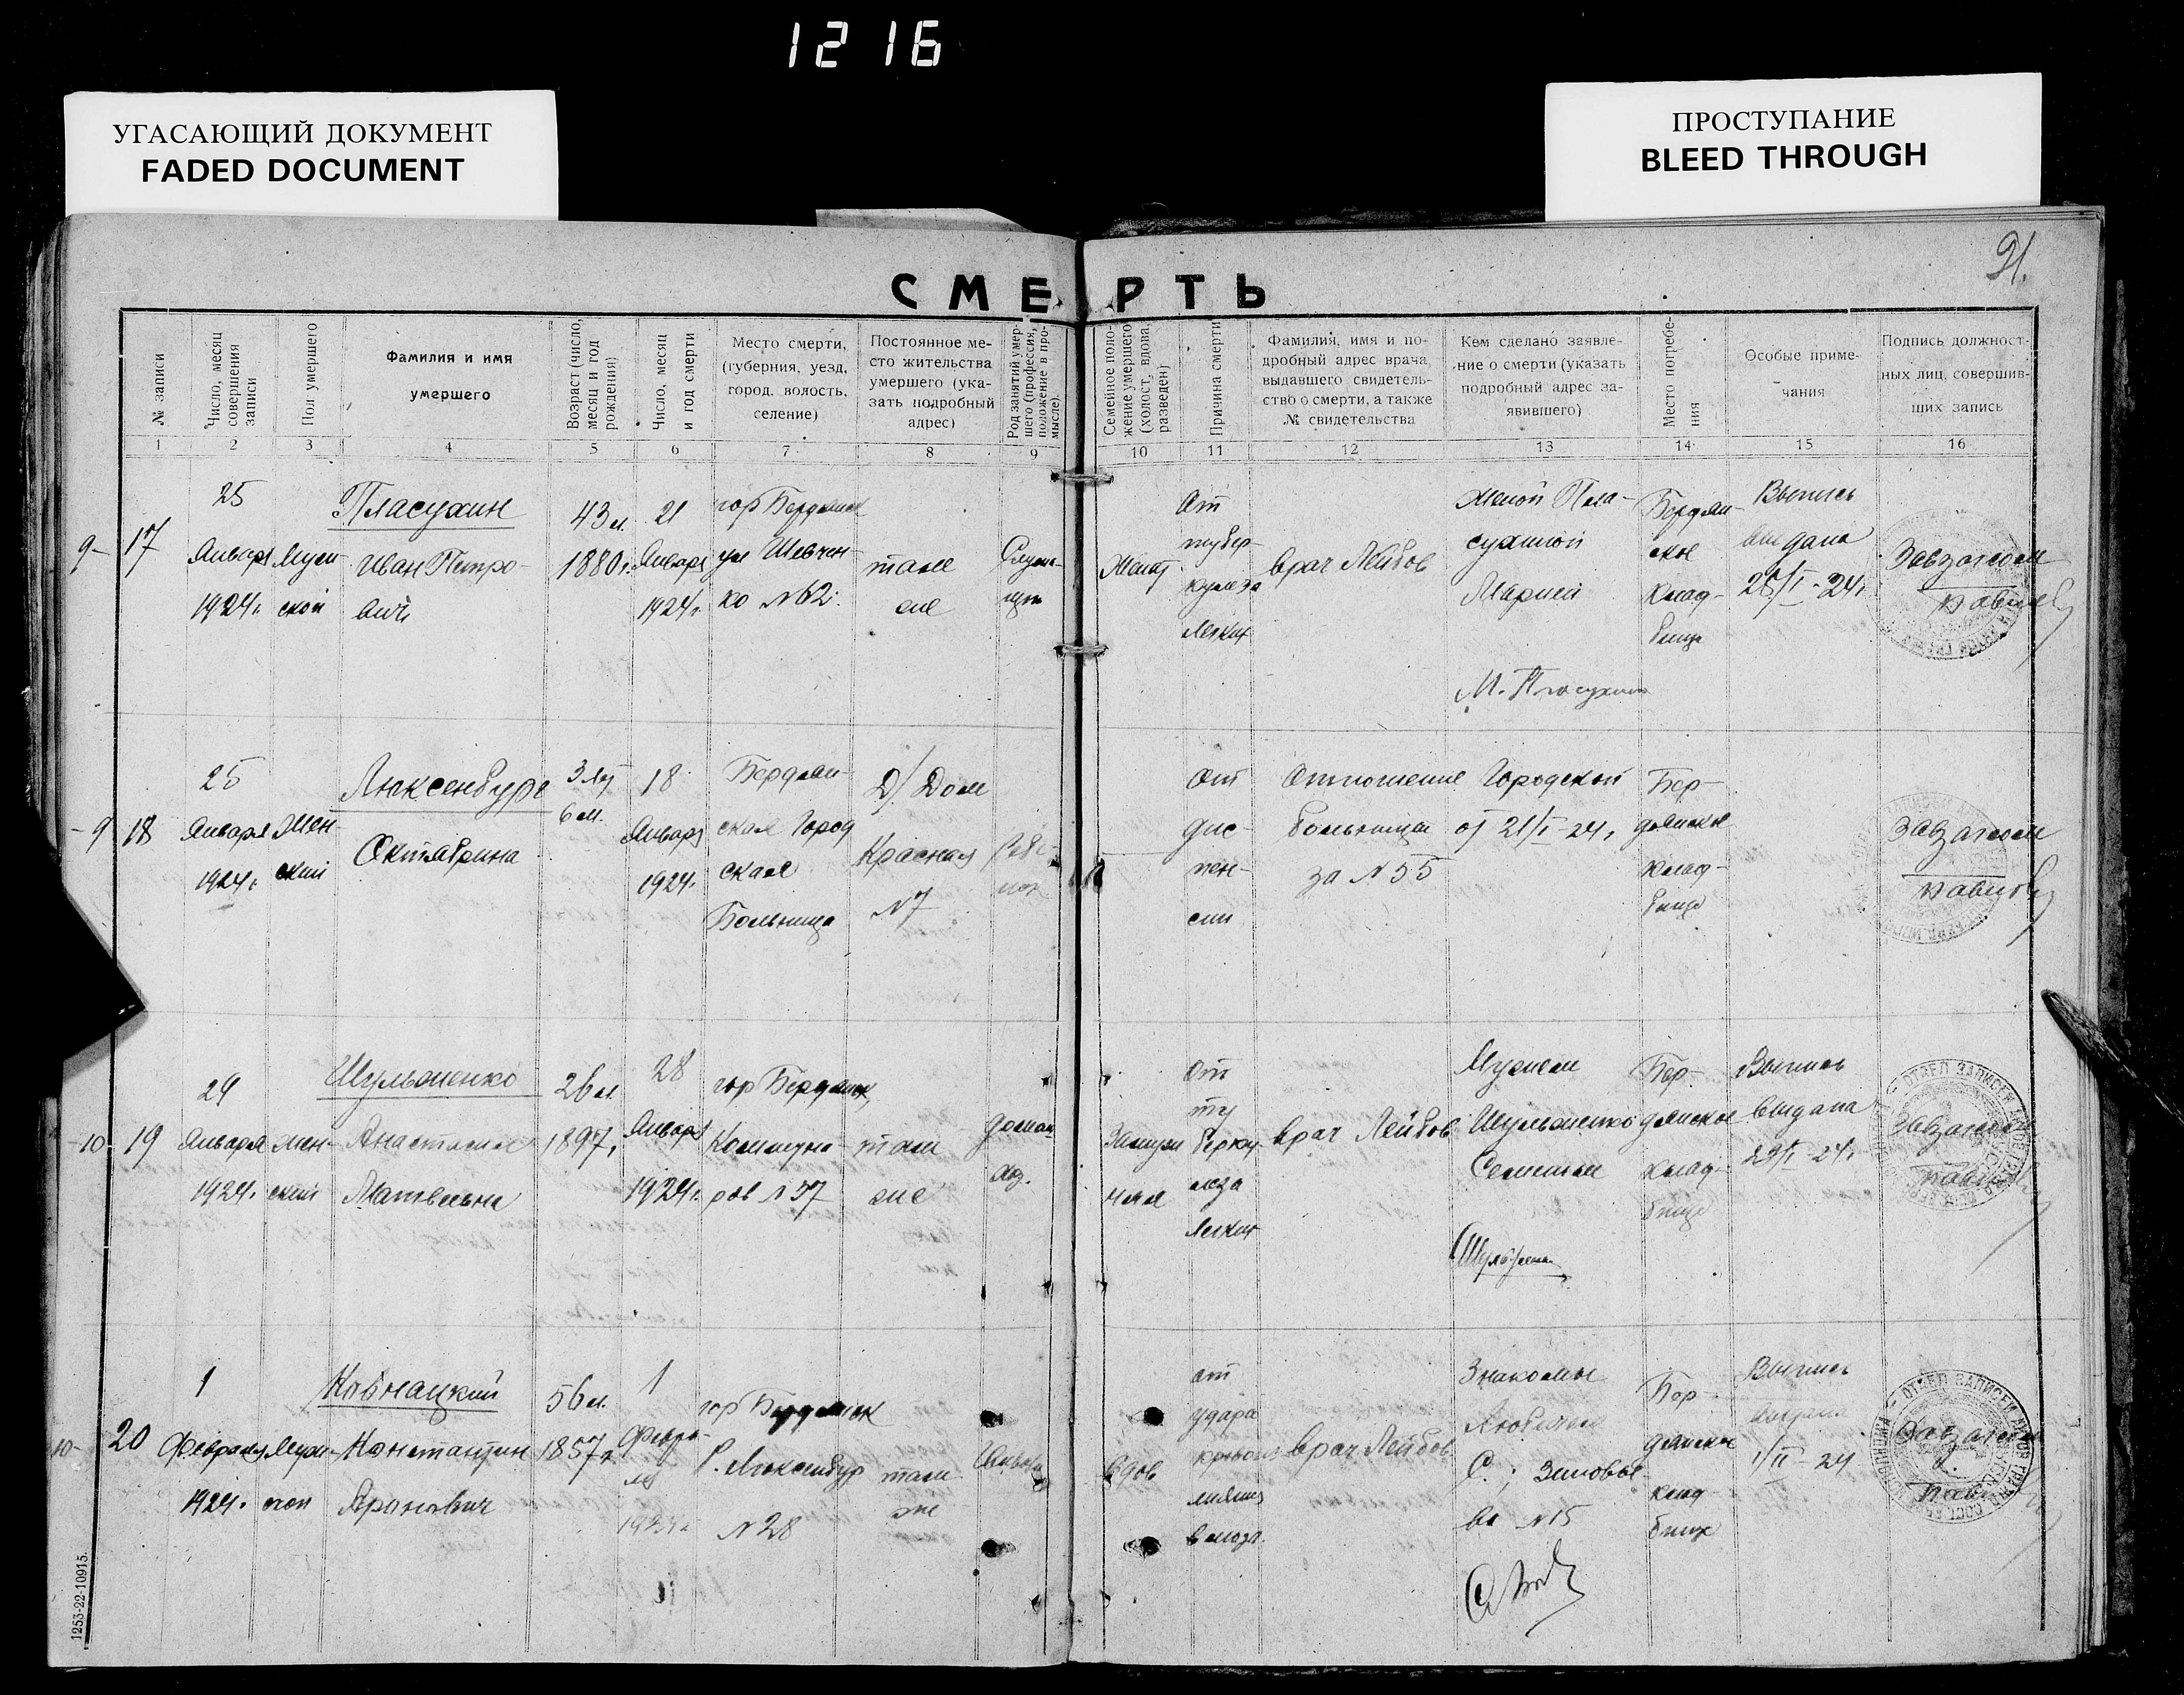 12 16
УГАСАЮЩИЙ ДОКУМЕНТ
FADED DOCUMENT
ПРОСТУПАНИЕ
BLEED THROUGH
21.
СМЕРТЬ
№ записи
Число, месяц
совершения
записи
Пол умершего
Фамилия и имя
умершего
Возраст (число,
месяц и год
рождения)
Число, месяц
и год смерти
Место смерти,
(губерния, уезд,
город, волость,
селение)
Постоянное ме-
сто жительства
умершего (ука-
зать подробный
адрес)
Род занятий умер-
шего (профессия,
положение в про-
мысле).
Семейное поло-
жение умершего
(холост, вдова,
разведен)
Причина смерти
Фамилия, имя и по-
дробный адрес врача,
выдавшего свидетель-
ство о смерти, а также
№ свидетельства
Кем сделано заявле-
ние о смерти (указать
подробный адрес за-
явившего)
Место погребе-
ния
Особые приме-
чания
Подпись должност-
ных лиц, совершив-
ших запись
1 2 3 4 5 6 7 8 9 10 11 12 13 14 15 16
9-
17
25
Января
1924г.
Муж-
ской
Пласухин
Иван Петро-
вич
43 л.
1880г.
21
Января
1924г.
гор Бердянск
ул Шевчен-
ко №62.
там
же
Женат
От
тубер-
кулеза
легких
врач Лейбов
Женой Пла-
сухиной
Марией
М. Пласухина
Бердян-
ское
клад-
бище
Выпись
выдана
25/I-24г
Завзагсом
-9
18
25
Января
1924г.
Жен-
ский
Люксенбург
Октябрина
3 лет
6 м.
18
Января
1924г.
Бердян-
ская Город
ская
Больница
Д/Дом
Красная
№7
От
дис-
пеп-
сии
Отношение Городской
больницы от 21/I-24г
за №55
Бер-
дянское
клад-
бище
Завзагсом
-10-
19
29
Января
1924г.
жен-
ский
Шульженко
Анастасия
Матвеевна
26 л.
1897г.
28
Января
1924г.
гор Бердянск,
Коммуна-
ров №37
там
же
домаш
хоз.
Замуж
няя
От
ту
берку
леза
легких
врач Лейбов
Мужем
Шульженко
Семеном
Бер-
дянское
клад-
бище
Выпись
выдана
29/I-24г
Завзагсом
10-
20
1
Февраля
1924г.
Муж-
ской
Константин
Аронович
56 л.
1857г.
1
Февра-
ля
1924г.
гор Бердянск
Р. Люксенбург
№28
там
же
вдов
от
удара
врач Лейбов
Знакомы
№15
Бер-
дянское
клад-
бище
Выпись
выдана
1/II-24
Завзагсом
1253-22-10915.